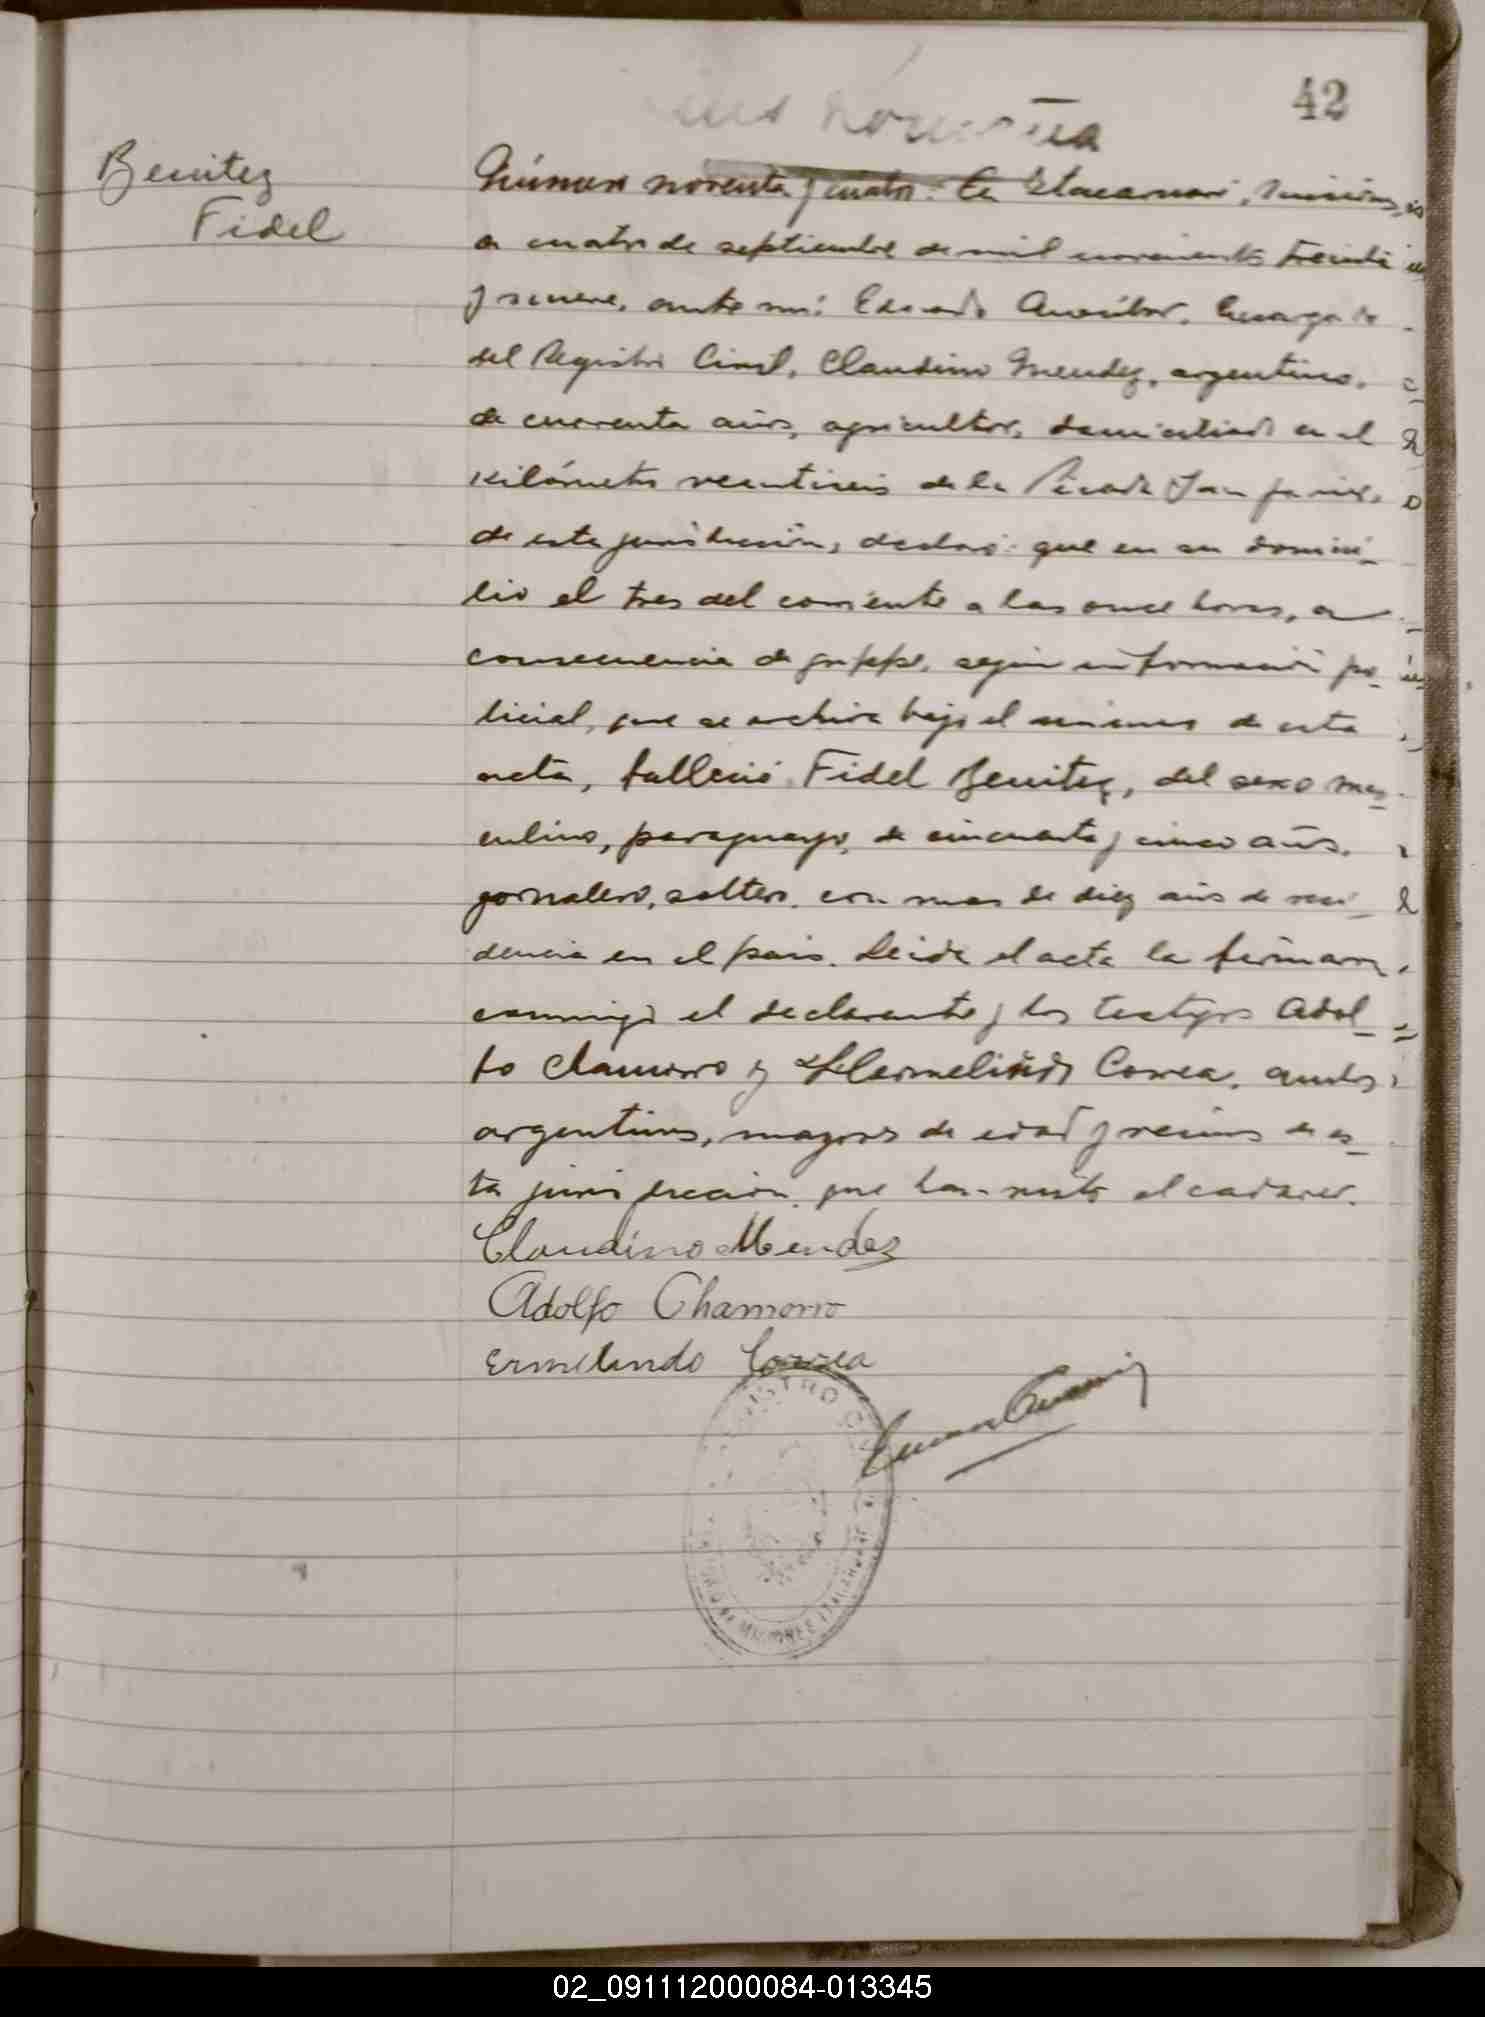 42
Benitez
Fidel
Número noventa y cuatro. En Itacaruaré, Misiones,
a cuatro de septiembre de mil novecientos treinta
y nueve, ante mi: Encargado
del Registro Civil, Claudino Mendez, argentino,
de cuarenta años, agricultor, domiciliado en el
kilómetro veintiseis de la Picada San Javier,
de esta jurisdicción, declaró: que en su domici-
lio el tres del corriente a las once horas, a
consecuencia de grippe, según información po-
licial, que se archiva bajo el número de esta
acta, falleció Fidel Benitez, del sexo mas-
culino, paraguayo, de cincuenta y cinco años,
jornalero, soltero, con mas de diez años de resi-
dencia en el pais. Leida el acta la firmaron
conmigo el declarante y los testigos Adol-
fo Chamorro y Hermelindo Correa, ambos
argentinos, mayores de edad y vecinos de es-
ta jurisdicción, que han visto el cadaver.
Claudino Mendez
Adolfo Chamorro
Ermelindo Correa
REGISTRO
MISIONES
02_091112000084-013345